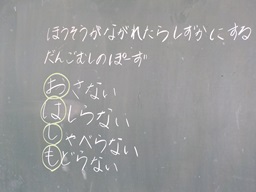 ほうそうがながれたらしずかにする
だんごむしのぽーず
おさない
はしらない
しゃべらない
もどらない